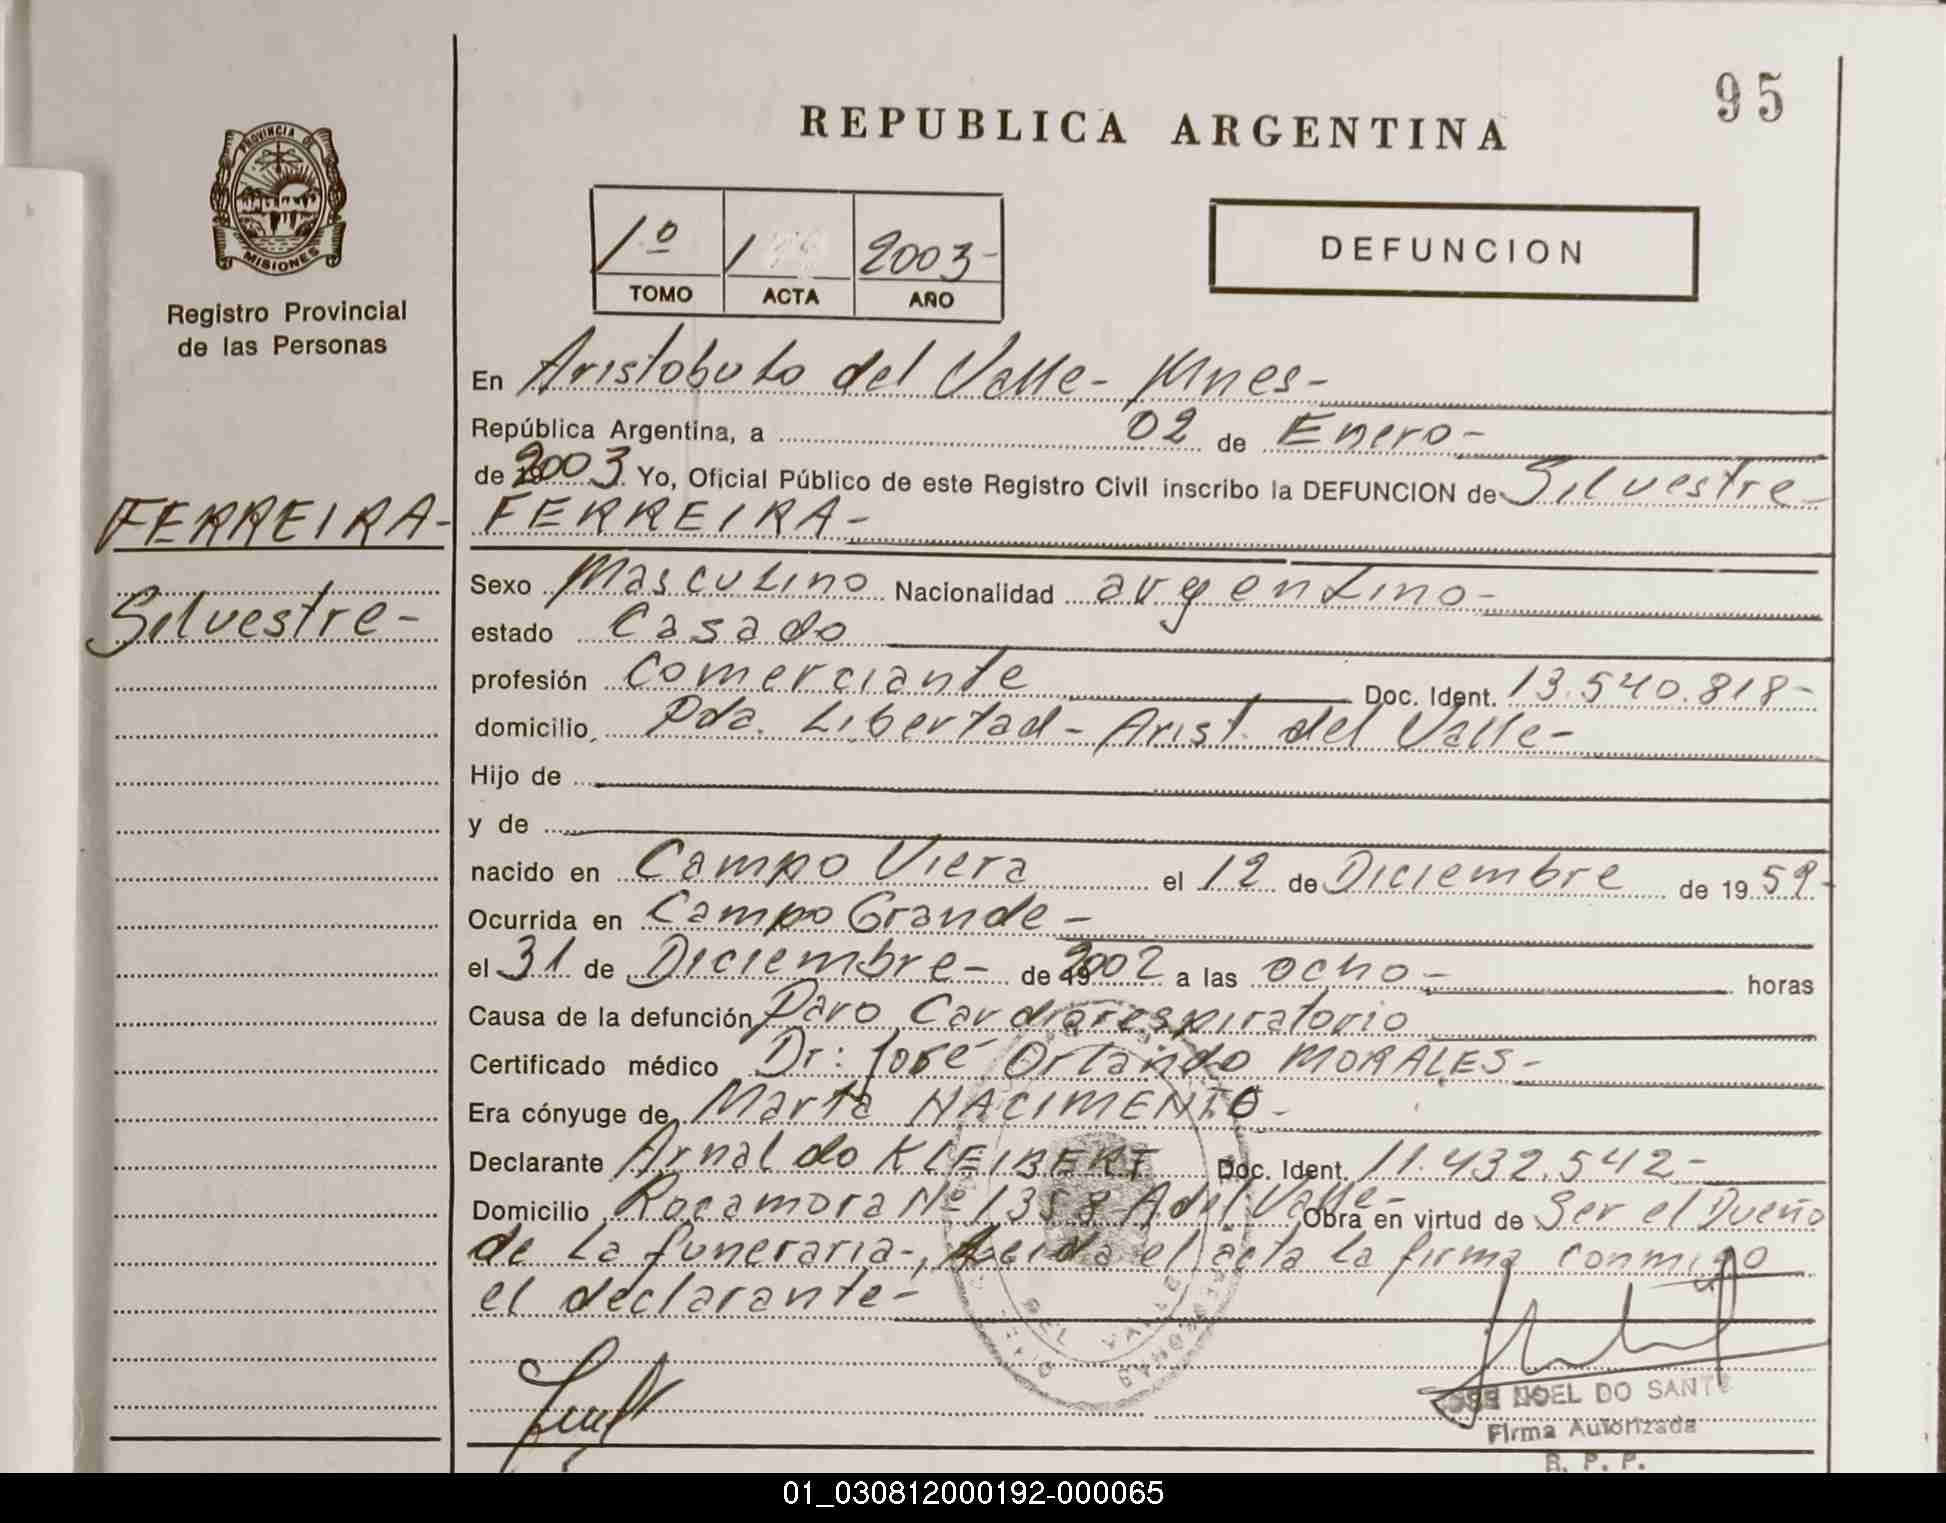 95
REPUBLICA ARGENTINA
PROVINCIA DE
MISIONES
Registro Provincial
de las Personas
1º 1 2003-
TOMO ACTA AÑO
DEFUNCION
En Aristobulo del Valle- Mnes-
República Argentina, a 02 de Enero-
de 2003 Yo, Oficial Público de este Registro Civil inscribo la DEFUNCION de Silvestre-
FERREIRA-
FERREIRA-
Silvestre-
Sexo Masculino Nacionalidad argentino-
estado Casado
profesión Comerciante Doc. Ident. 13.540.818-
domicilio Pda. Libertad- Arist. del Valle-
Hijo de
y de
nacido en Campo Viera el 12 de Diciembre de 1959-
Ocurrida en Campo Grande-
el 31 de Diciembre- de 2002 a las ocho- horas
Causa de la defunción Paro Cardiarespiratorio
Certificado médico Dr: José Orlando MORALES-
Era cónyuge de Marta NACIMENTO-
Declarante Arnaldo KLEIBERT Doc. Ident. 11.432.542-
Domicilio Rocamora Nº 1358 A del Valle- Obra en virtud de Ser el Dueño
de la funeraria-, Leida el acta la firma conmigo
el declarante-
DEL VALLE
JOSE NOEL DO SANT
Firma Autorizada
R. P. P.
01_030812000192-000065